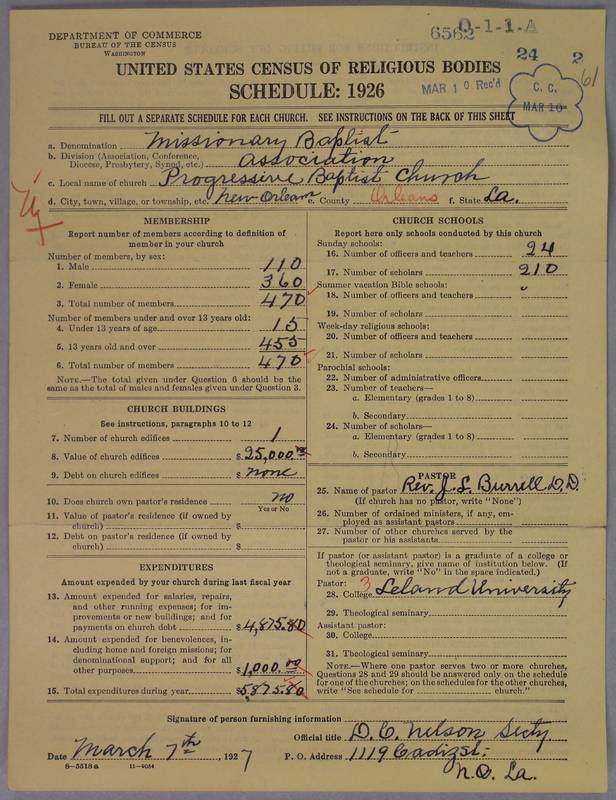 DEPARTMENT OF COMMERCE
BUREAU OF THE CENSUS
WASHINGTON
6562 0-1-1-A
24 2
61
MAR 10 Rec'd
C. C.
MAR 10
UNITED STATES CENSUS OF RELIGIOUS BODIES
SCHEDULE: 1926
FILL OUT A SEPARATE SCHEDULE FOR EACH CHURCH. SEE INSTRUCTIONS ON THE BACK OF THIS SHEET
a. Denomination Missionary Baptist
b. Division (Association, Conference, Diocese, Presbytery, Synod, etc.) Association
c. Local name of church Progressive Baptist Church
d. City, town, village, or township, etc. New Orleans e. County Orleans f. State La.
MEMBERSHIP
Report number of members according to definition of
member in your church
Number of members, by sex:
1. Male 110
2. Female 360
3. Total number of members 470
Number of members under and over 13 years old:
4. Under 13 years of age 15
5. 13 years old and over 455
6. Total number of members 470
NOTE.—The total given under Question 6 should be
same as the total of males and females given under Question 3.
CHURCH BUILDINGS
See instructions, paragraphs 10 to 12
7. Number of church edifices 1
8. Value of church edifices $25,000.00
9. Debt on church edifices $ none
10. Does church own pastor's residence no
Yes or No
11. Value of pastor's residence (if owned by
church) $
12. Debt on pastor's residence (if owned by
church) $
EXPENDITURES
Amount expended by your church during last fiscal year
13. Amount expended for salaries, repairs,
and other running expenses; for im-
provements or new buildings; and for
payments on church debt $4,875.80
14. Amount expended for benevolences, in-
cluding home and foreign missions; for
denominational support; and for all
other purposes $1,000.00
15. Total expenditures during year $5,875.80
CHURCH SCHOOLS
Report here only schools conducted by this church
Sunday schools:
16. Number of officers and teachers 24
17. Number of scholars 210
Summer vacation Bible schools:
18. Number of officers and teachers "
19. Number of scholars
Week-day religious schools:
20. Number of officers and teachers
21. Number of scholars
Parochial schools:
22. Number of administrative officers
23. Number of teachers—
a. Elementary (grades 1 to 8)
b. Secondary
24. Number of scholars—
a. Elementary (grades 1 to 8)
b. Secondary
PASTOR
25. Name of pastor Rev. J. L. Burrell D.D.
(If church has no pastor, write "None")
26. Number of ordained ministers, if any, em-
ployed as assistant pastors
27. Number of other churches served by the
pastor or his assistants
If pastor (or assistant pastor) is a graduate of a college or
theological seminary, give name of institution below. (If
not a graduate, write "No" in the space indicated.)
Pastor: 3
28. College Leland University
29. Theological seminary
Assistant pastor:
30. College
31. Theological seminary
NOTE.—Where one pastor serves two or more churches,
Questions 28 and 29 should be answered only on the schedule
for one of the churches; on the schedules for the other churches,
write "See schedule for church."
Signature of person furnishing information
Official title D. C. Nelson Secty
Date March 7th, 1927 P. O. Address 1119 Cadiz st.
N.O. La.
8-5518a 11-4034